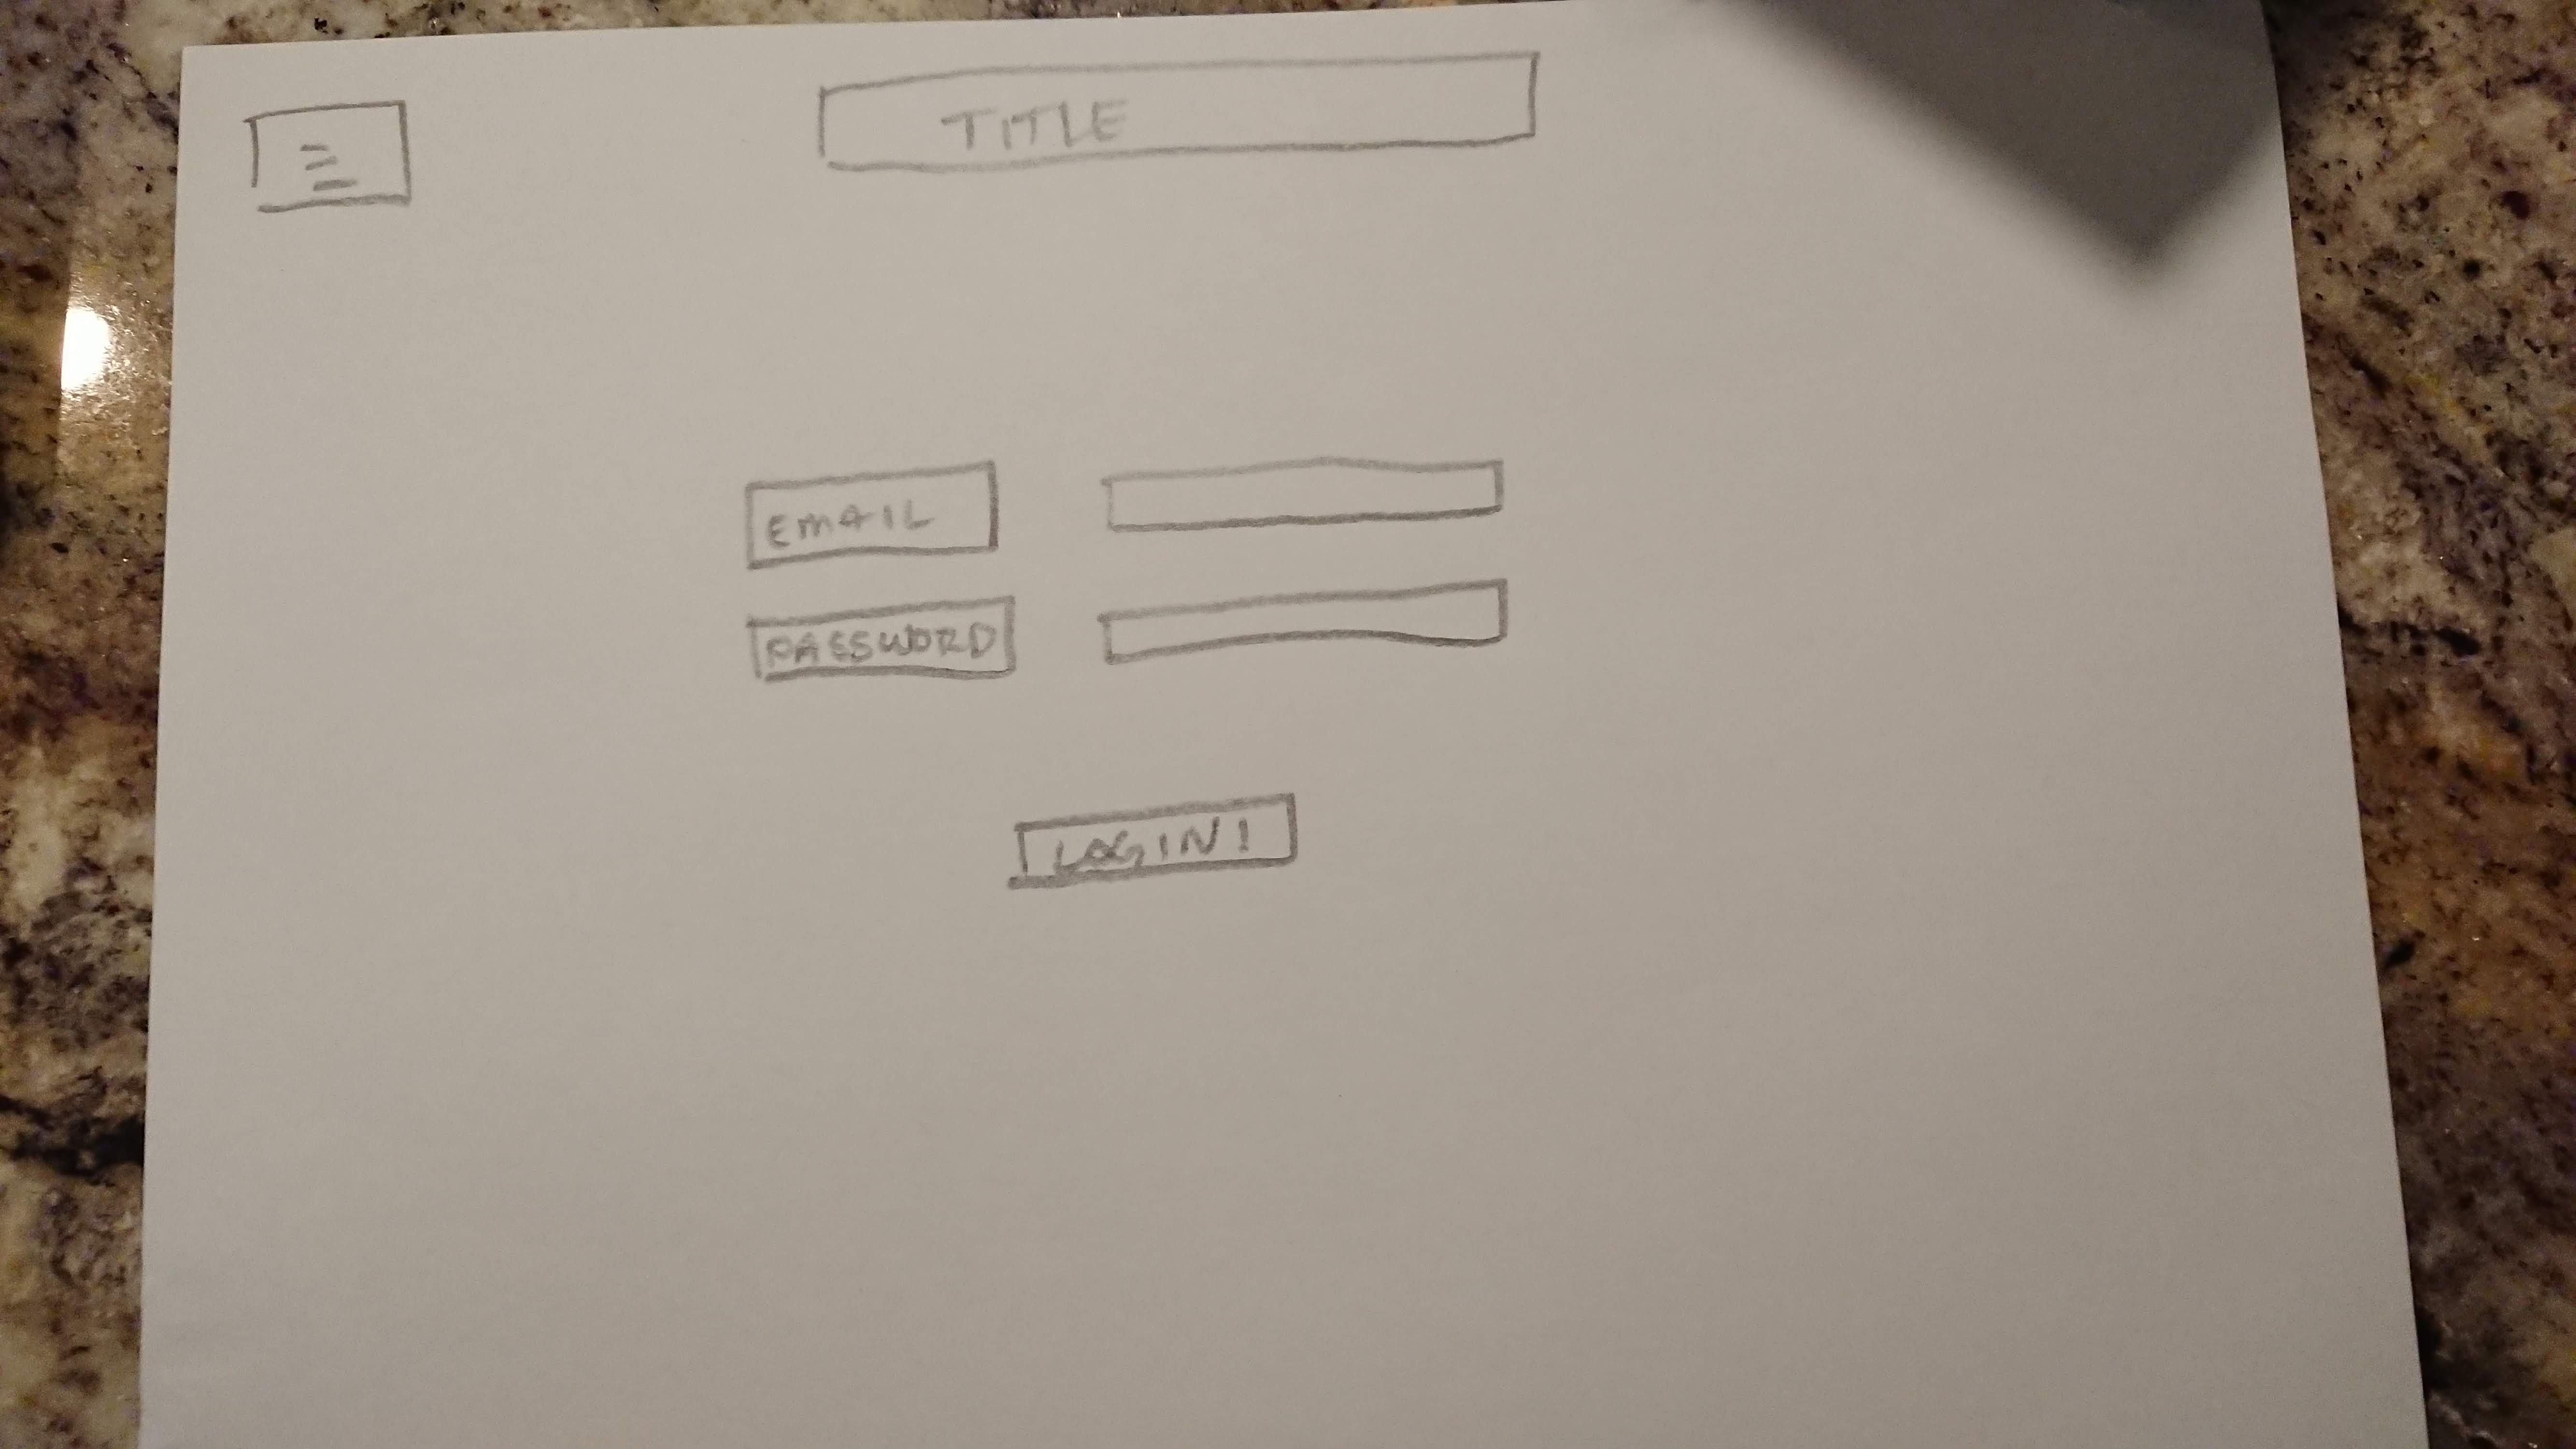 TITLE
EMAIL
PASSWORD
LOGIN!